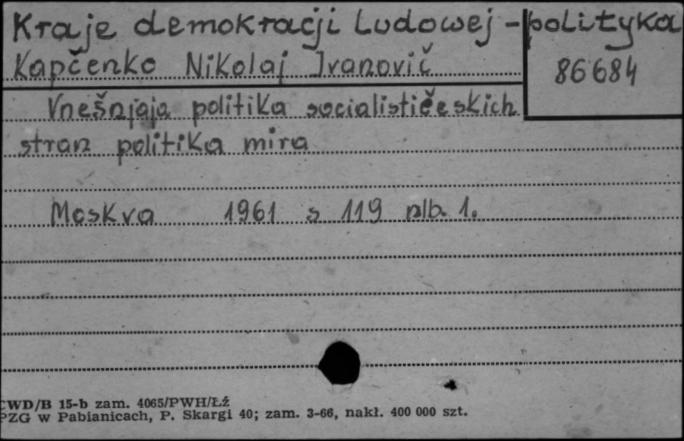 Kraje demokracji Ludowej - polityka
Kapčenko Nikolaj Ivanovič
86684
Vnešnjaja politika socialističeskich
stran politika mira
Moskva 1961 s 119 nlb. 1.
CWD/B 15-b zam. 4065/PWH/ŁŹ
PZG w Pabianicach, P. Skargi 40; zam. 3-66, nakł. 400 000 szt.